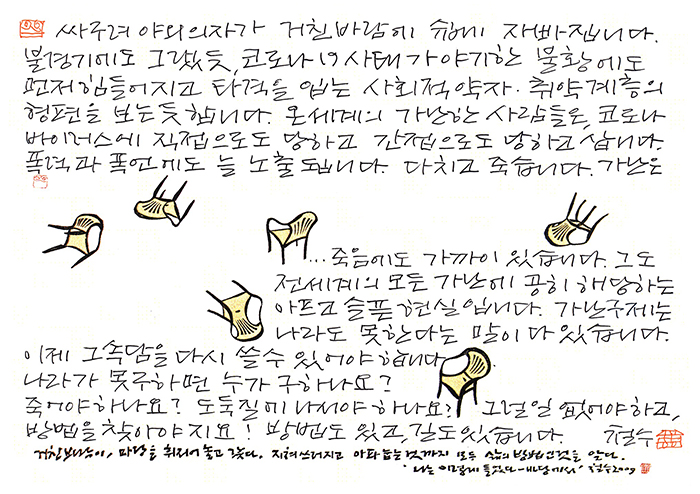 싸구려 야외의자가 거친바람에 쉽게 자빠집니다.
불경기에도 그랬듯, 코로나19사태가 야기한 불황에도
먼저 힘들어지고 타격을 입는 사회적약자. 취약계층의
형편을 보는듯 합니다. 온세계의 가난한 사람들은, 코로나
바이러스에 직접으로도 당하고 간접으로도 당하고 삽니다.
폭력과 폭언에도 늘 노출됩니다. 다치고 죽습니다. 가난은
...죽음에도 가까이 있습니다. 그도
전세계의 모든 가난에 공히 해당하는
아프고 슬픈 현실입니다. 가난구제는
나라도 못한다는 말이 다 있습니다.
이제 그속담을 다시 쓸수 있어야 합니다
나라가 못구하면 누가 구하나요?
죽어야 하나요? 도둑질에 나서야 하나요? 그럴일 없어야 하고,
방법을 찾아야지요! 방법도 있고, 길도 있습니다. 철수
거친 바람이, 마당을 휘저어 놓고 갔다. 지쳐 쓰러지고 아파 눕는 것까지 모두 삶의 방법인 것을 안다.
'나는 이렇게 들었다-마당에서' 철수2009